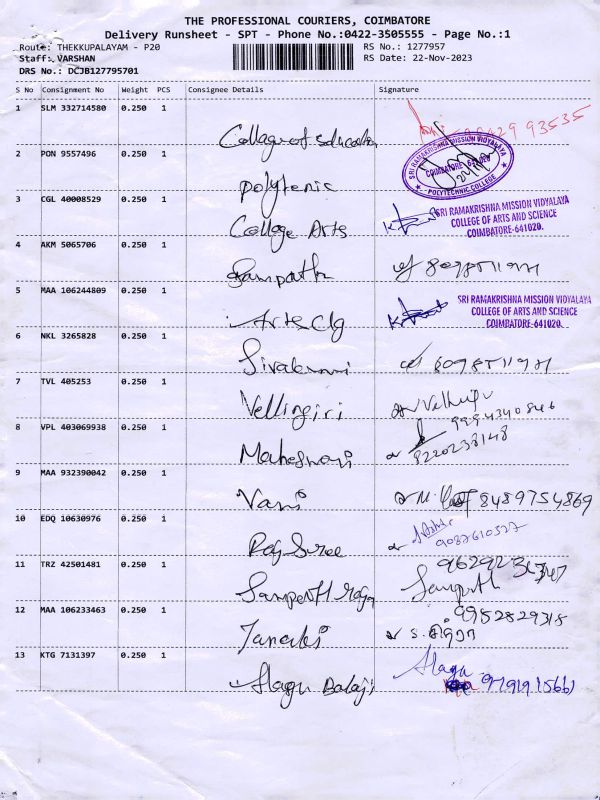 THE PROFESSIONAL COURIERS, COIMBATORE
Delivery Runsheet - SPT - Phone No.:0422-3505555 - Page No.:1
Route: THEKKUPALAYAM - P20
RS No.: 1277957
Staff: VARSHAN
RS Date: 22-Nov-2023
DRS No.: DCJB127795701
S No Consignment No Weight PCS Consignee Details Signature
1 SLM 332714580 0.250 1
College of Education 93535
2 PON 9557496 0.250 1
SRI RAMAKRISHNA MISSION VIDYALAYA
COIMBATORE
POLYTECHNIC COLLEGE
polytenic
3 CGL 40008529 0.250 1
SRI RAMAKRISHNA MISSION VIDYALAYA
COLLEGE OF ARTS AND SCIENCE
COIMBATORE-641020.
College Arts
4 AKM 5065706 0.250 1
Sampath
5 MAA 106244809 0.250 1
SRI RAMAKRISHNA MISSION VIDYALAYA
COLLEGE OF ARTS AND SCIENCE
COIMBATORE-641020.
Arts Clg
6 NKL 3265828 0.250 1
7 TVL 405253 0.250 1
Vellingiri
9994340846
8 VPL 403069938 0.250 1
Maheswari 8220238148
9 MAA 932390042 0.250 1
Vani 8489754869
10 EDQ 10630976 0.250 1
Raj Sree 9087610527
11 TRZ 42501481 0.250 1
Sampath Raja Sampath
12 MAA 106233463 0.250 1
9952829318
Janaki
13 KTG 7131397 0.250 1
Alagu
Alagu Balaji